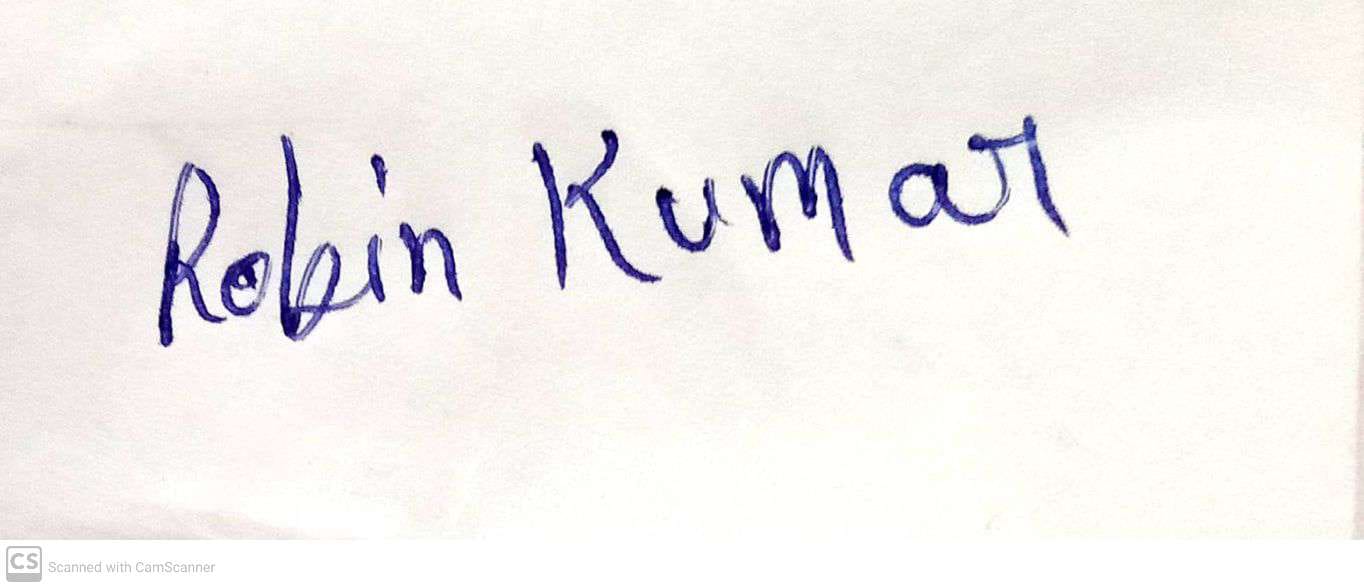 Robin Kumar
CS Scanned with CamScanner